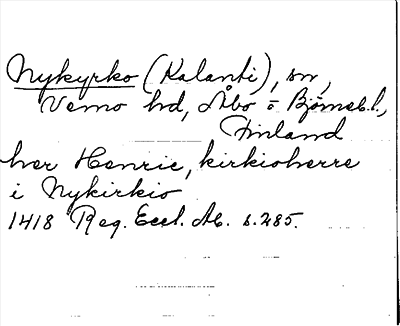 Nykyrko (Kalanti), sn,
Vemo hd, Åbo o Björneb.l.,
Finland
her Henric, kirkioherre
i Nykirkio
1418 Reg. Eccl. Ab. s. 285.